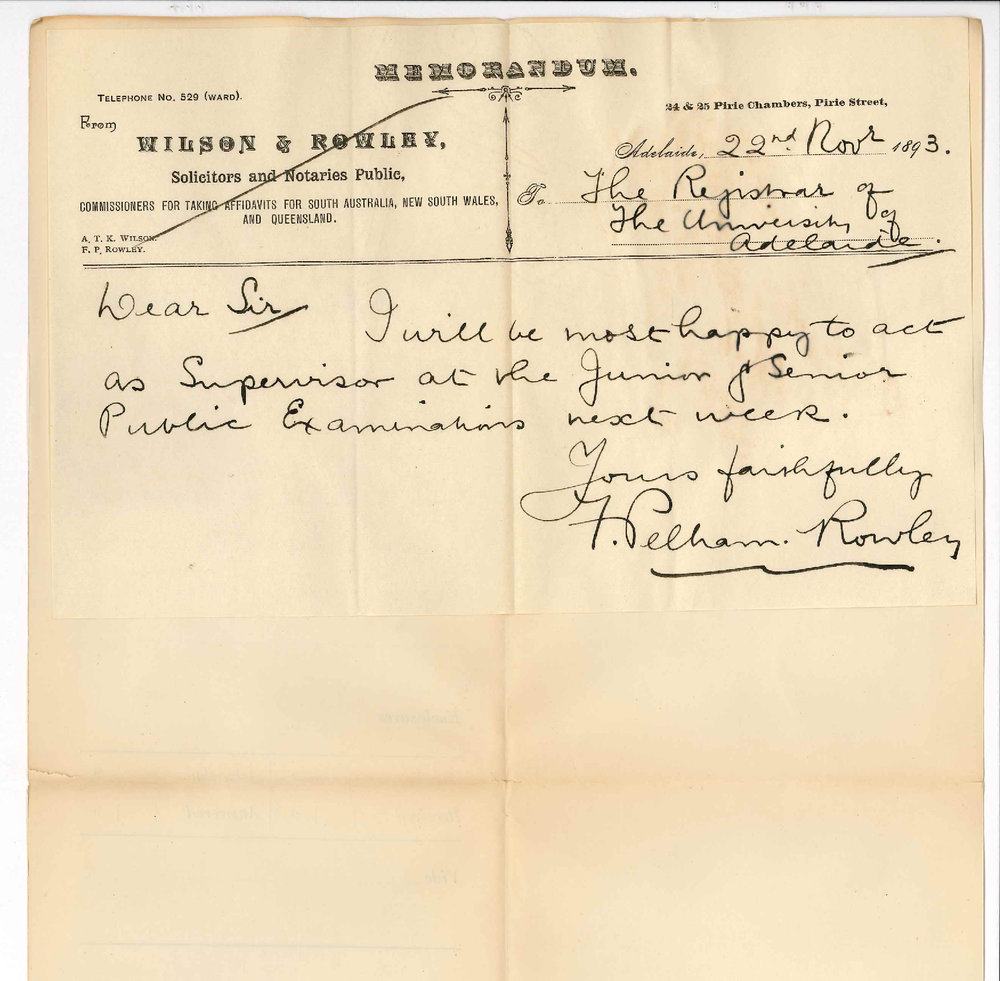 MEMORANDUM.
TELEPHONE No. 529 (WARD).
24 & 25 Pirie Chambers, Pirie Street,
From
WILSON & ROWLEY,
Adelaide, 22nd Novr 1893.
Solicitors and Notaries Public,
To The Registrar of
COMMISSIONERS FOR TAKING AFFIDAVITS FOR SOUTH AUSTRALIA, NEW SOUTH WALES,
AND QUEENSLAND.
The University of
Adelaide.
A. T. K. WILSON.
F. P. ROWLEY.
Dear Sir
I will be most happy to act
as Supervisor at the Junior & Senior
Public Examinations next week.
Yours faithfully
F. Pelham. Rowley
Enclosures